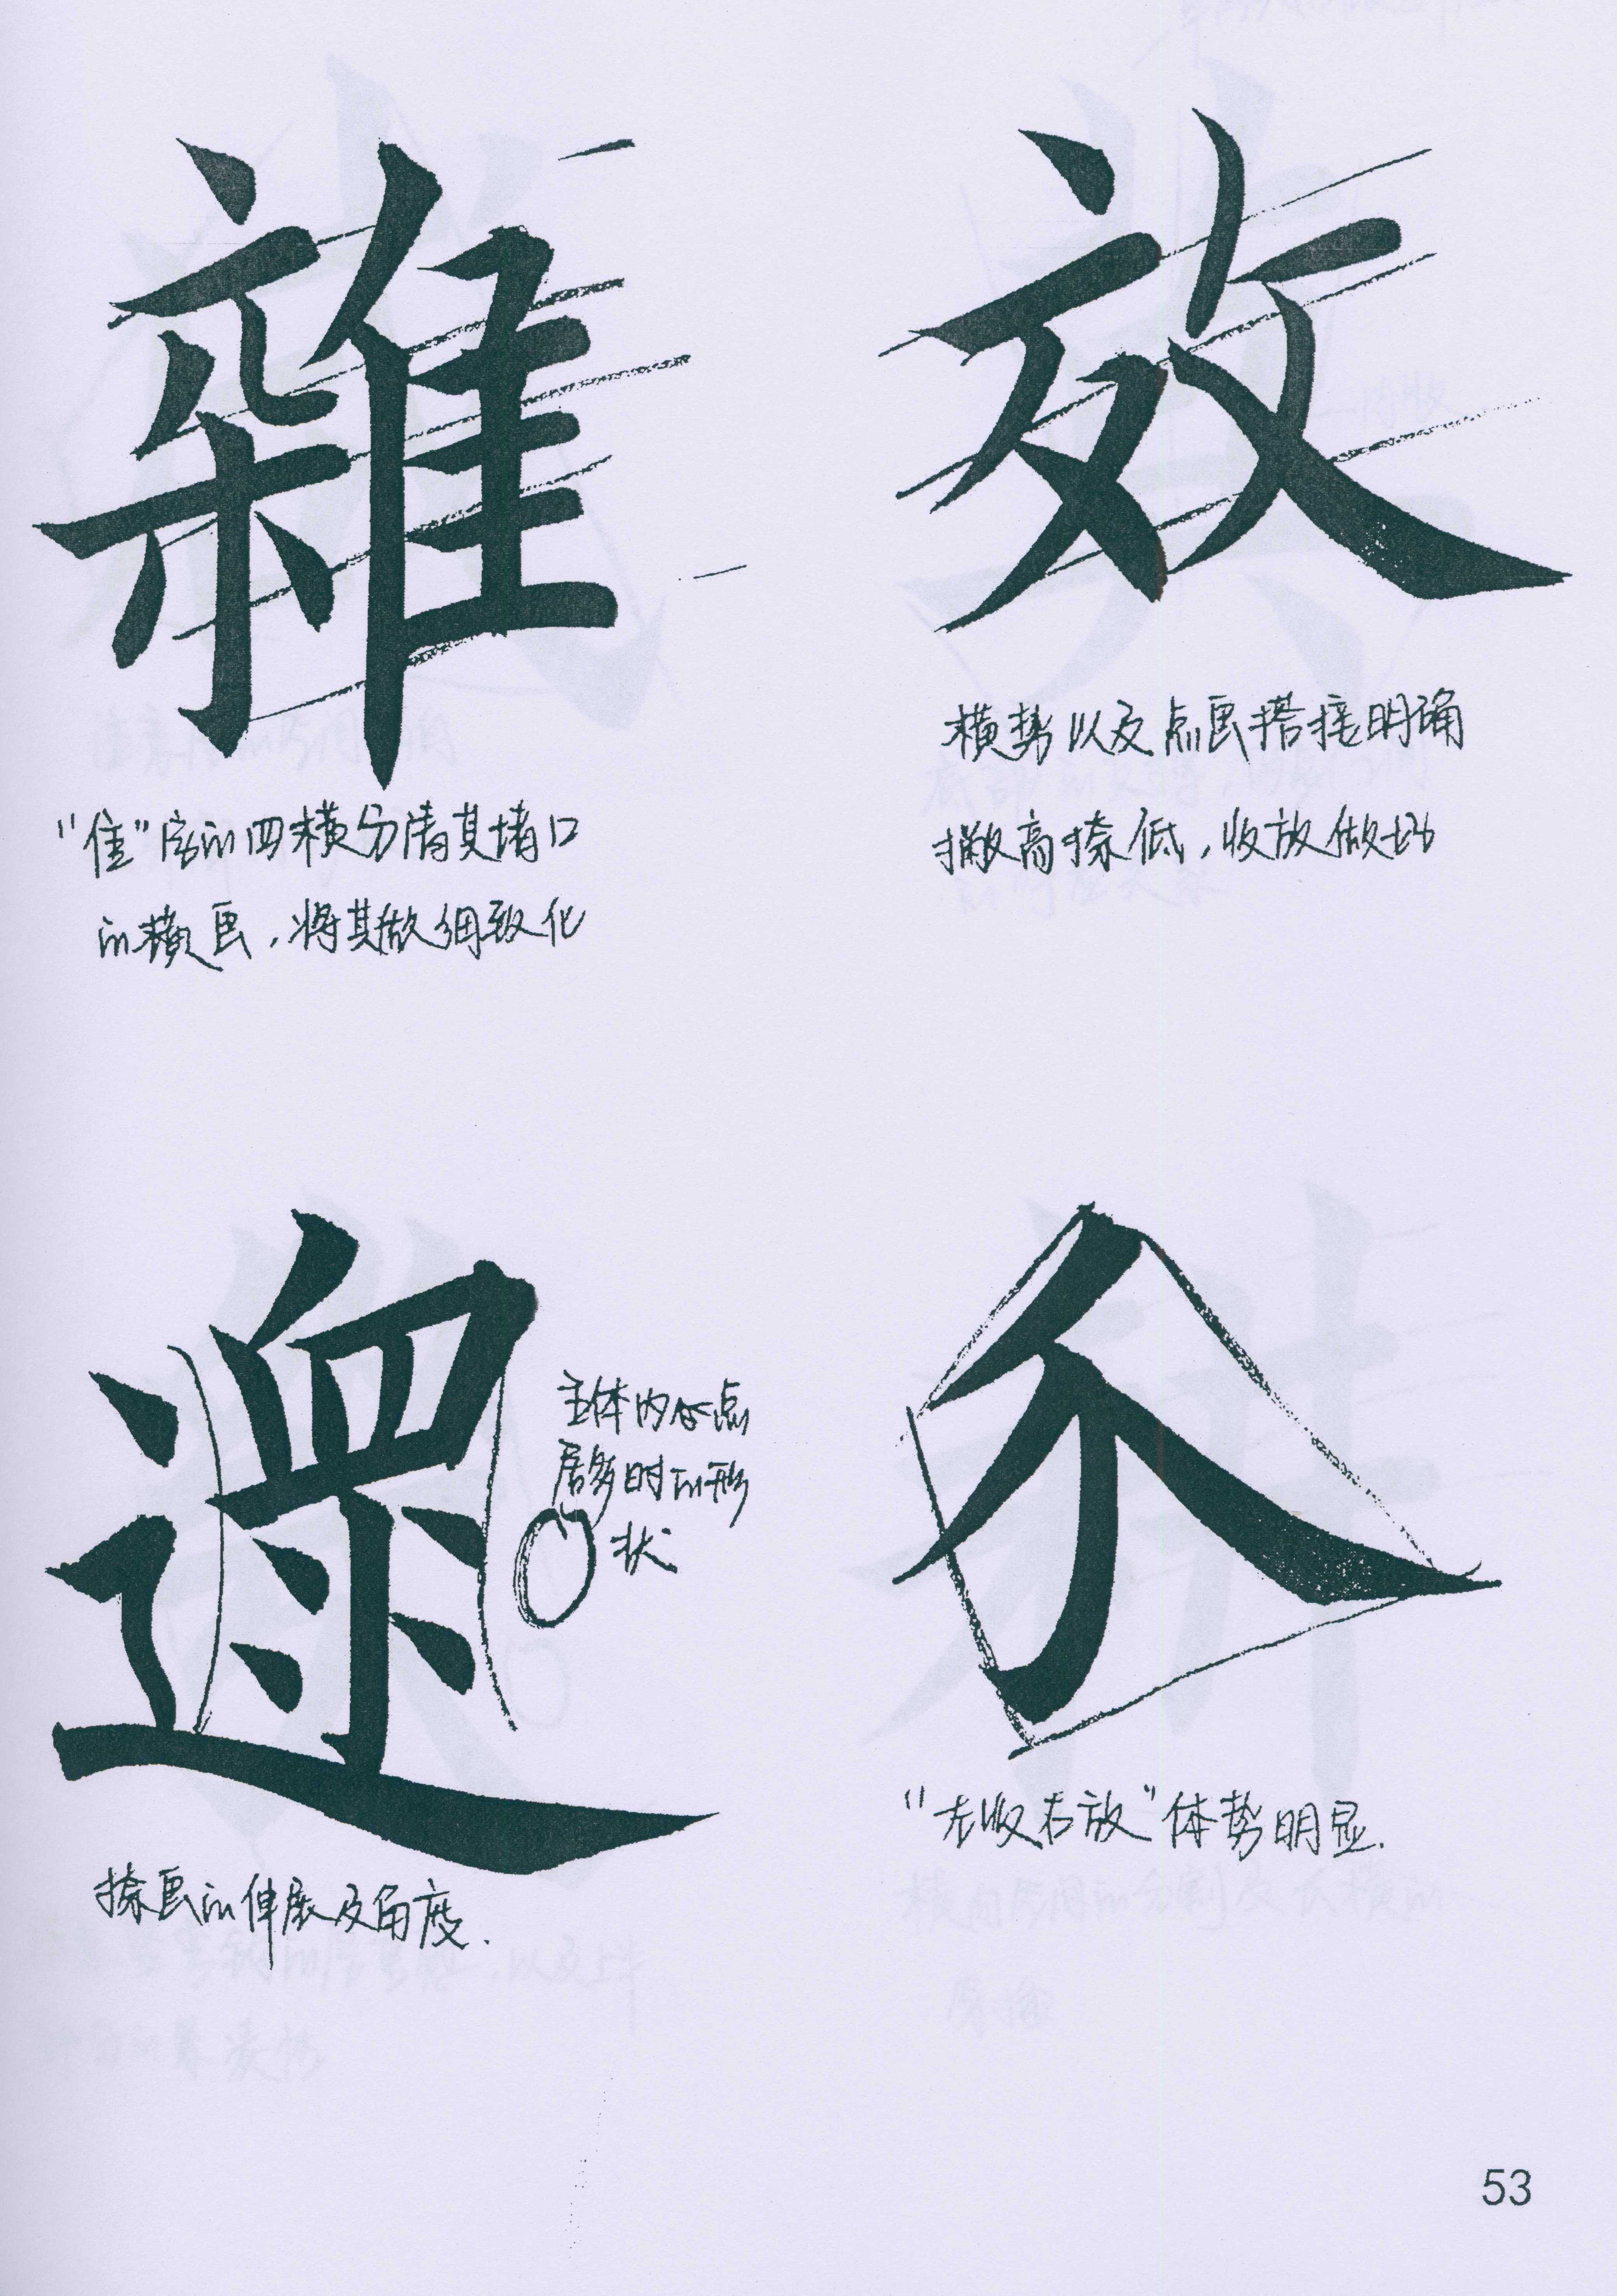 雜
效
"隹"字的四横分清其堵口
的横画，将其做细致化
横势以及点画搭接明确
撇高捺低，收放做好
邆
主体内含点
居多时的形
状
捺画的伸展及角度.
"左收右放"体势明显.
53